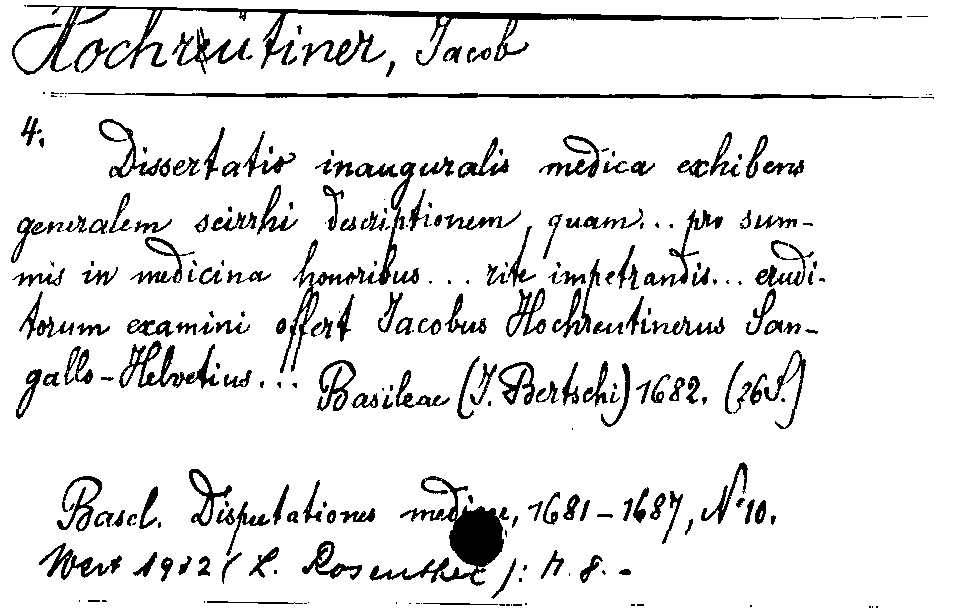 Hochreutiner, Jacob
4.
Dissertatio inauguralis medica exhibens
generalem scirrhi descriptionem, quam... pro sum-
mis in medicina honoribus... rite impetrandis... erudi-
torum examini offert Jacobus Hochreutinerus San-
gallo-Helvetius...
Basileae (J. Bertschi) 1682. (26 S.)
Basel. Disputationes medicae, 1681-1687, No 10.
Wert 1912 (L. Rosenthal): M. 8.-